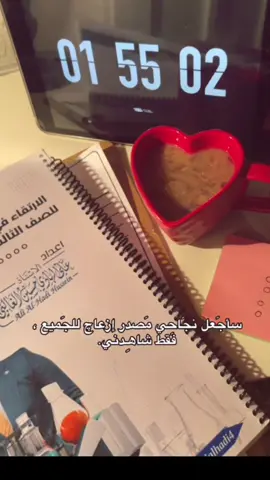 01 55 02
الارتقاء في
للصف الثالث
إعداد الأستاذ
Ali Al Hadi Hussein
سأجَعل نجَاحي مًصدر إزعاج للجًميع ،
فَقَط شاهِدني.
alhadi4